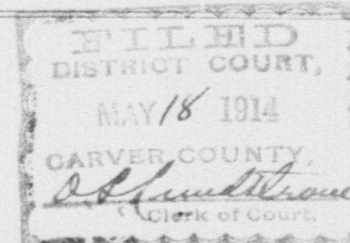 FILED
DISTRICT COURT,
MAY 18 1914
CARVER COUNTY,
Clerk of Court.